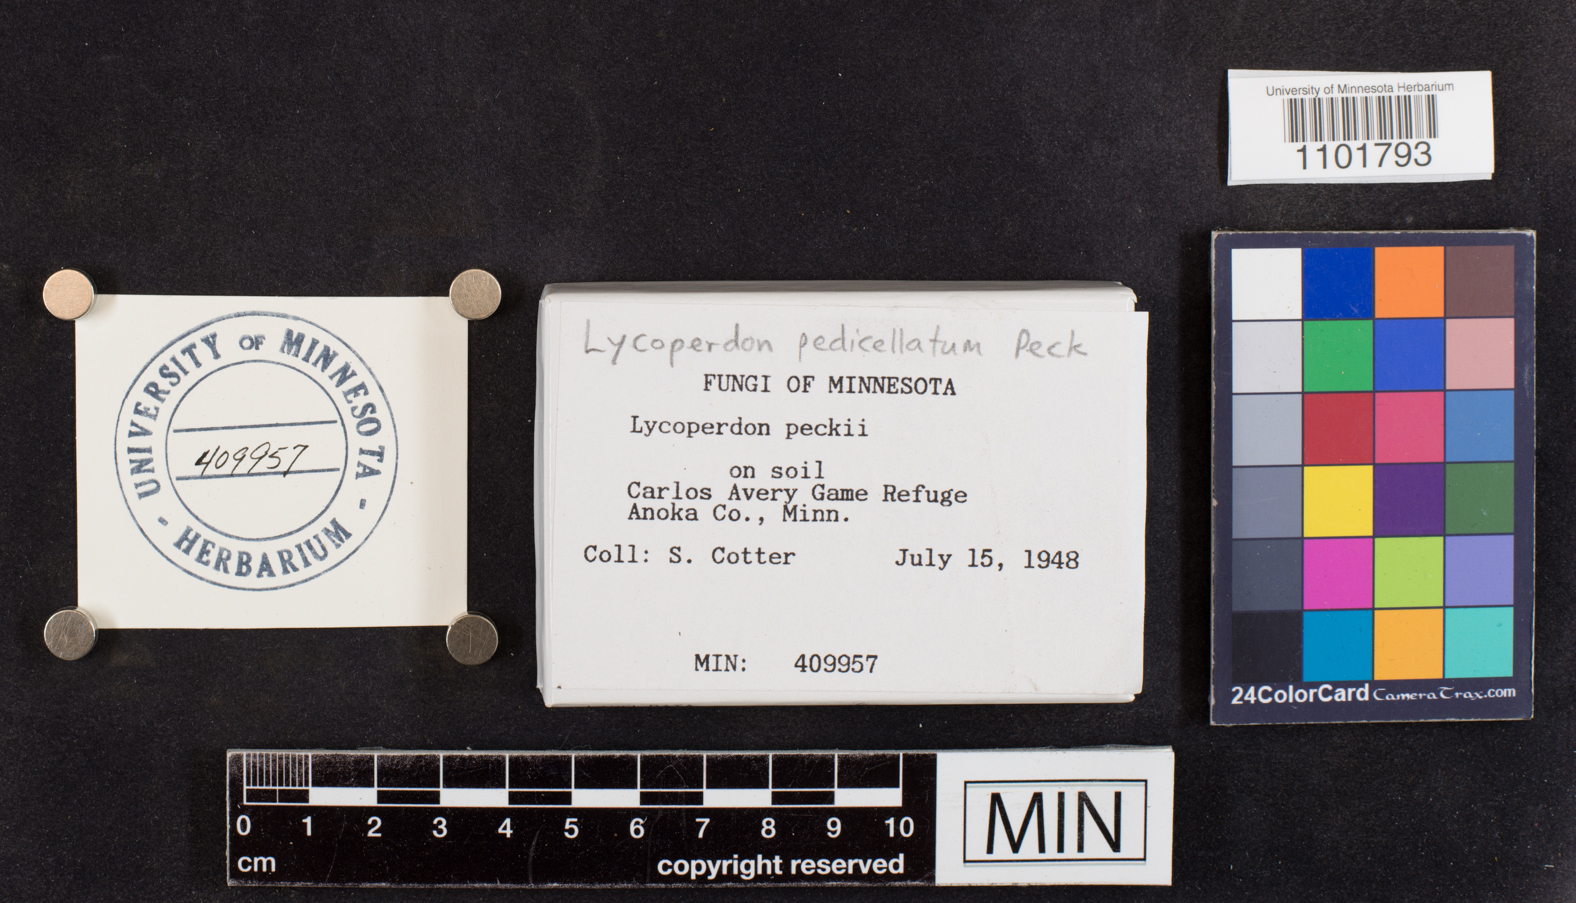 University of Minnesota Herbarium
1101793
UNIVERSITY OF MINNESOTA
409957
- HERBARIUM -
Lycoperdon pedicellatum Peck
FUNGI OF MINNESOTA
Lycoperdon peckii
on soil
Carlos Avery Game Refuge
Anoka Co., Minn.
Coll: S. Cotter July 15, 1948
MIN: 409957
24ColorCard CameraTrax.com
0 1 2 3 4 5 6 7 8 9 10
cm copyright reserved
MIN